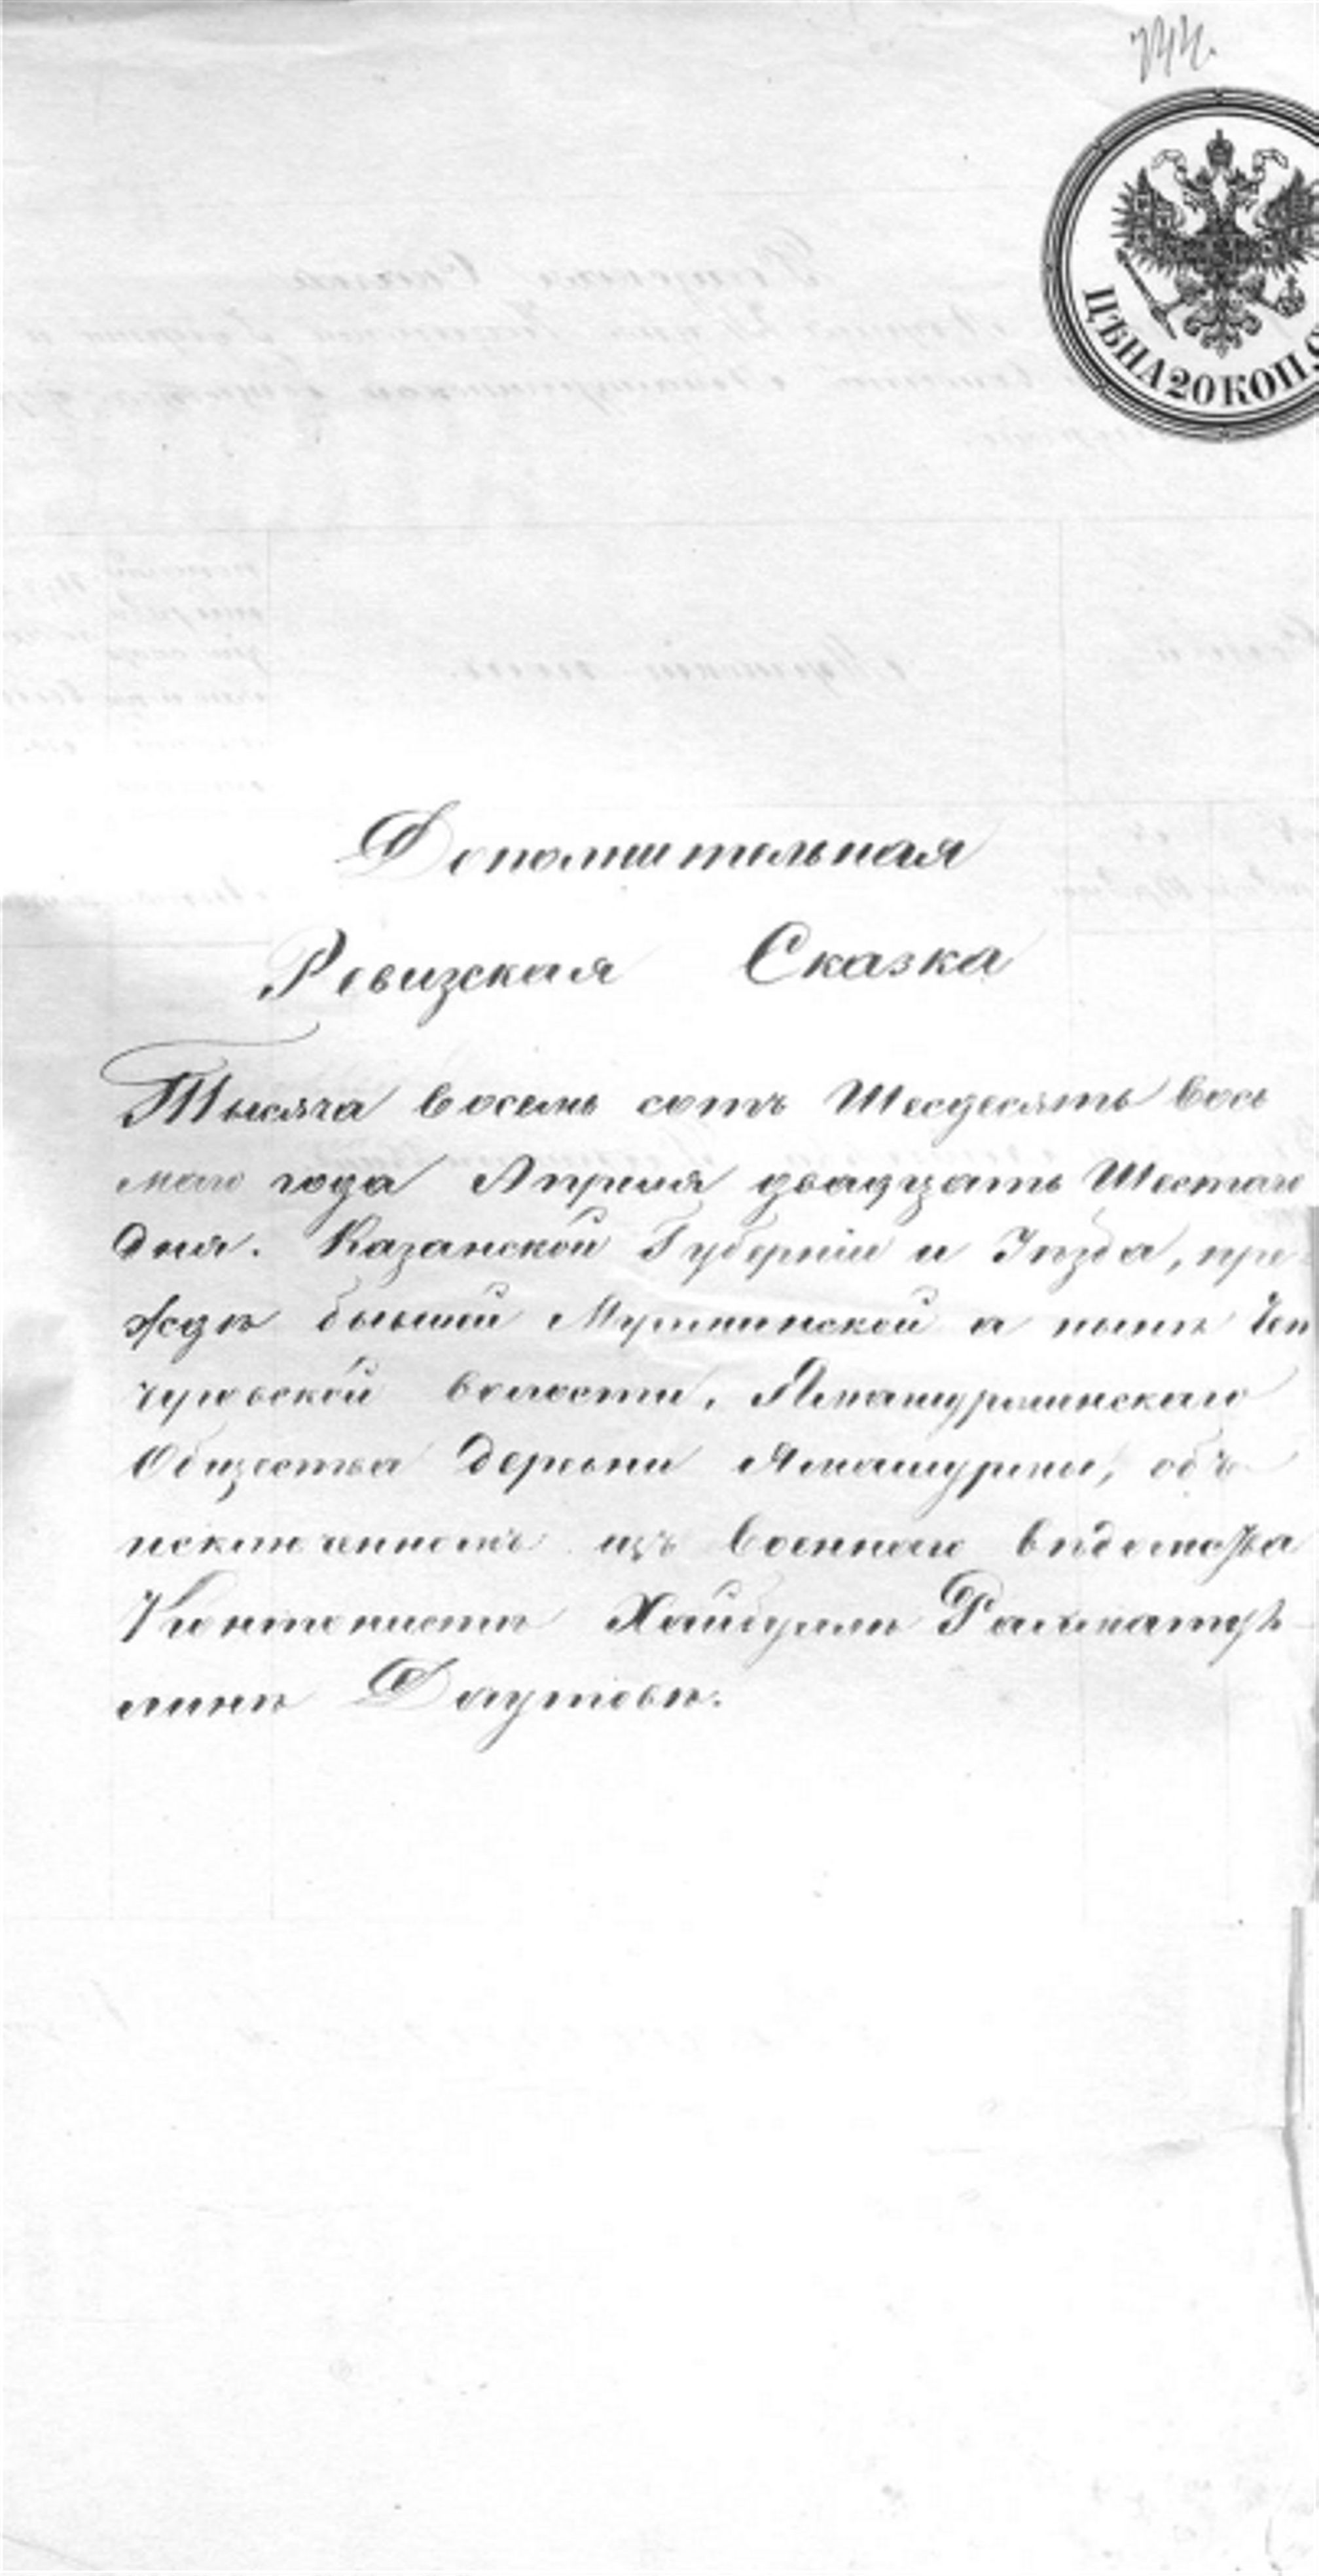 744.
ЦѢНА 20 КОП. С
Дополнительная
Ревизская Сказка
Тысяча восемь сотъ Шесдесятъ вось
маго года Апреля двадцать Шестаго
дня. Казанской Губерніи и Уѣзда, пре-
жде бывшей Мульминской а нынѣ Чеп
чуговской волости, Ямашурминскаго
Общества деревни Ямашурмы, объ
исключенномъ изъ военнаго вѣдомства
Кантонистѣ Хайбуллѣ Рахматул-
линѣ Даутовѣ.